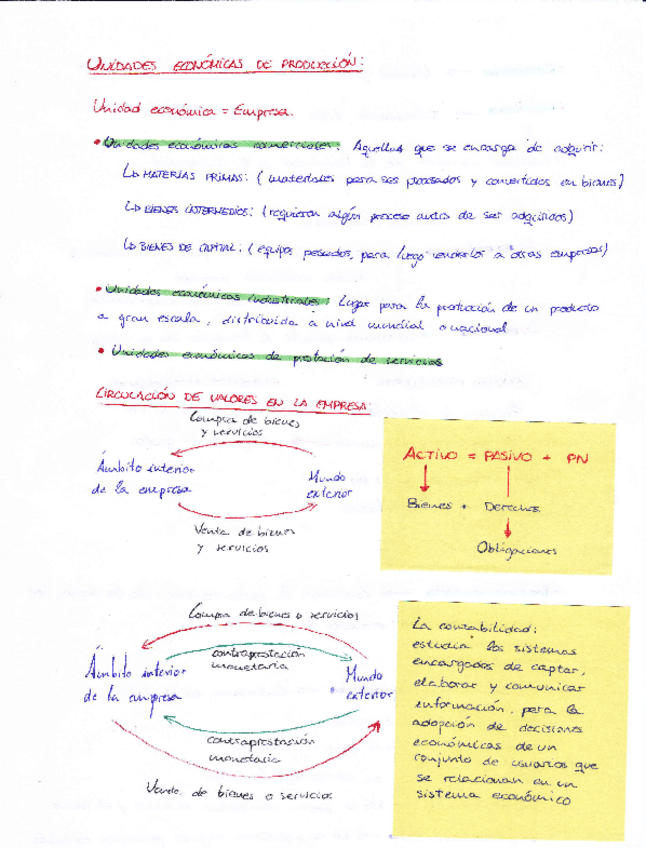 UNIDADES ECONÓMICAS DE PRODUCCIÓN:
Unidad económica = Empresa.
• Unidades económicas comerciales: Aquellas que se encarga de adquirir:
↳ MATERIAS PRIMAS: (materiales para ser procesados y convertidos en bienes)
↳ BIENES INTERMEDIOS: (requieren algún proceso antes de ser adquiridos)
↳ BIENES DE CAPITAL: (equipos pesados, para luego venderlos a otras empresas)
• Unidades económicas industriales: Lugar para la producción de un producto
a gran escala, distribuida a nivel mundial o nacional
• Unidades económicas de prestación de servicios
CIRCULACIÓN DE VALORES EN LA EMPRESA:
Compra de bienes
y servicios
Ámbito interior
de la empresa
Mundo
exterior
Venta de bienes
y servicios
ACTIVO = PASIVO + PN
Bienes + Derechos
Obligaciones
Compra de bienes o servicios
contraprestación
monetaria
Ámbito interior
de la empresa
Mundo
exterior
contraprestación
monetaria
Venta de bienes o servicios
La contabilidad:
estudia los sistemas
encargados de captar,
elaborar y comunicar
información, para la
adopción de decisiones
económicas de un
conjunto de usuarios que
se relacionan en un
sistema económico